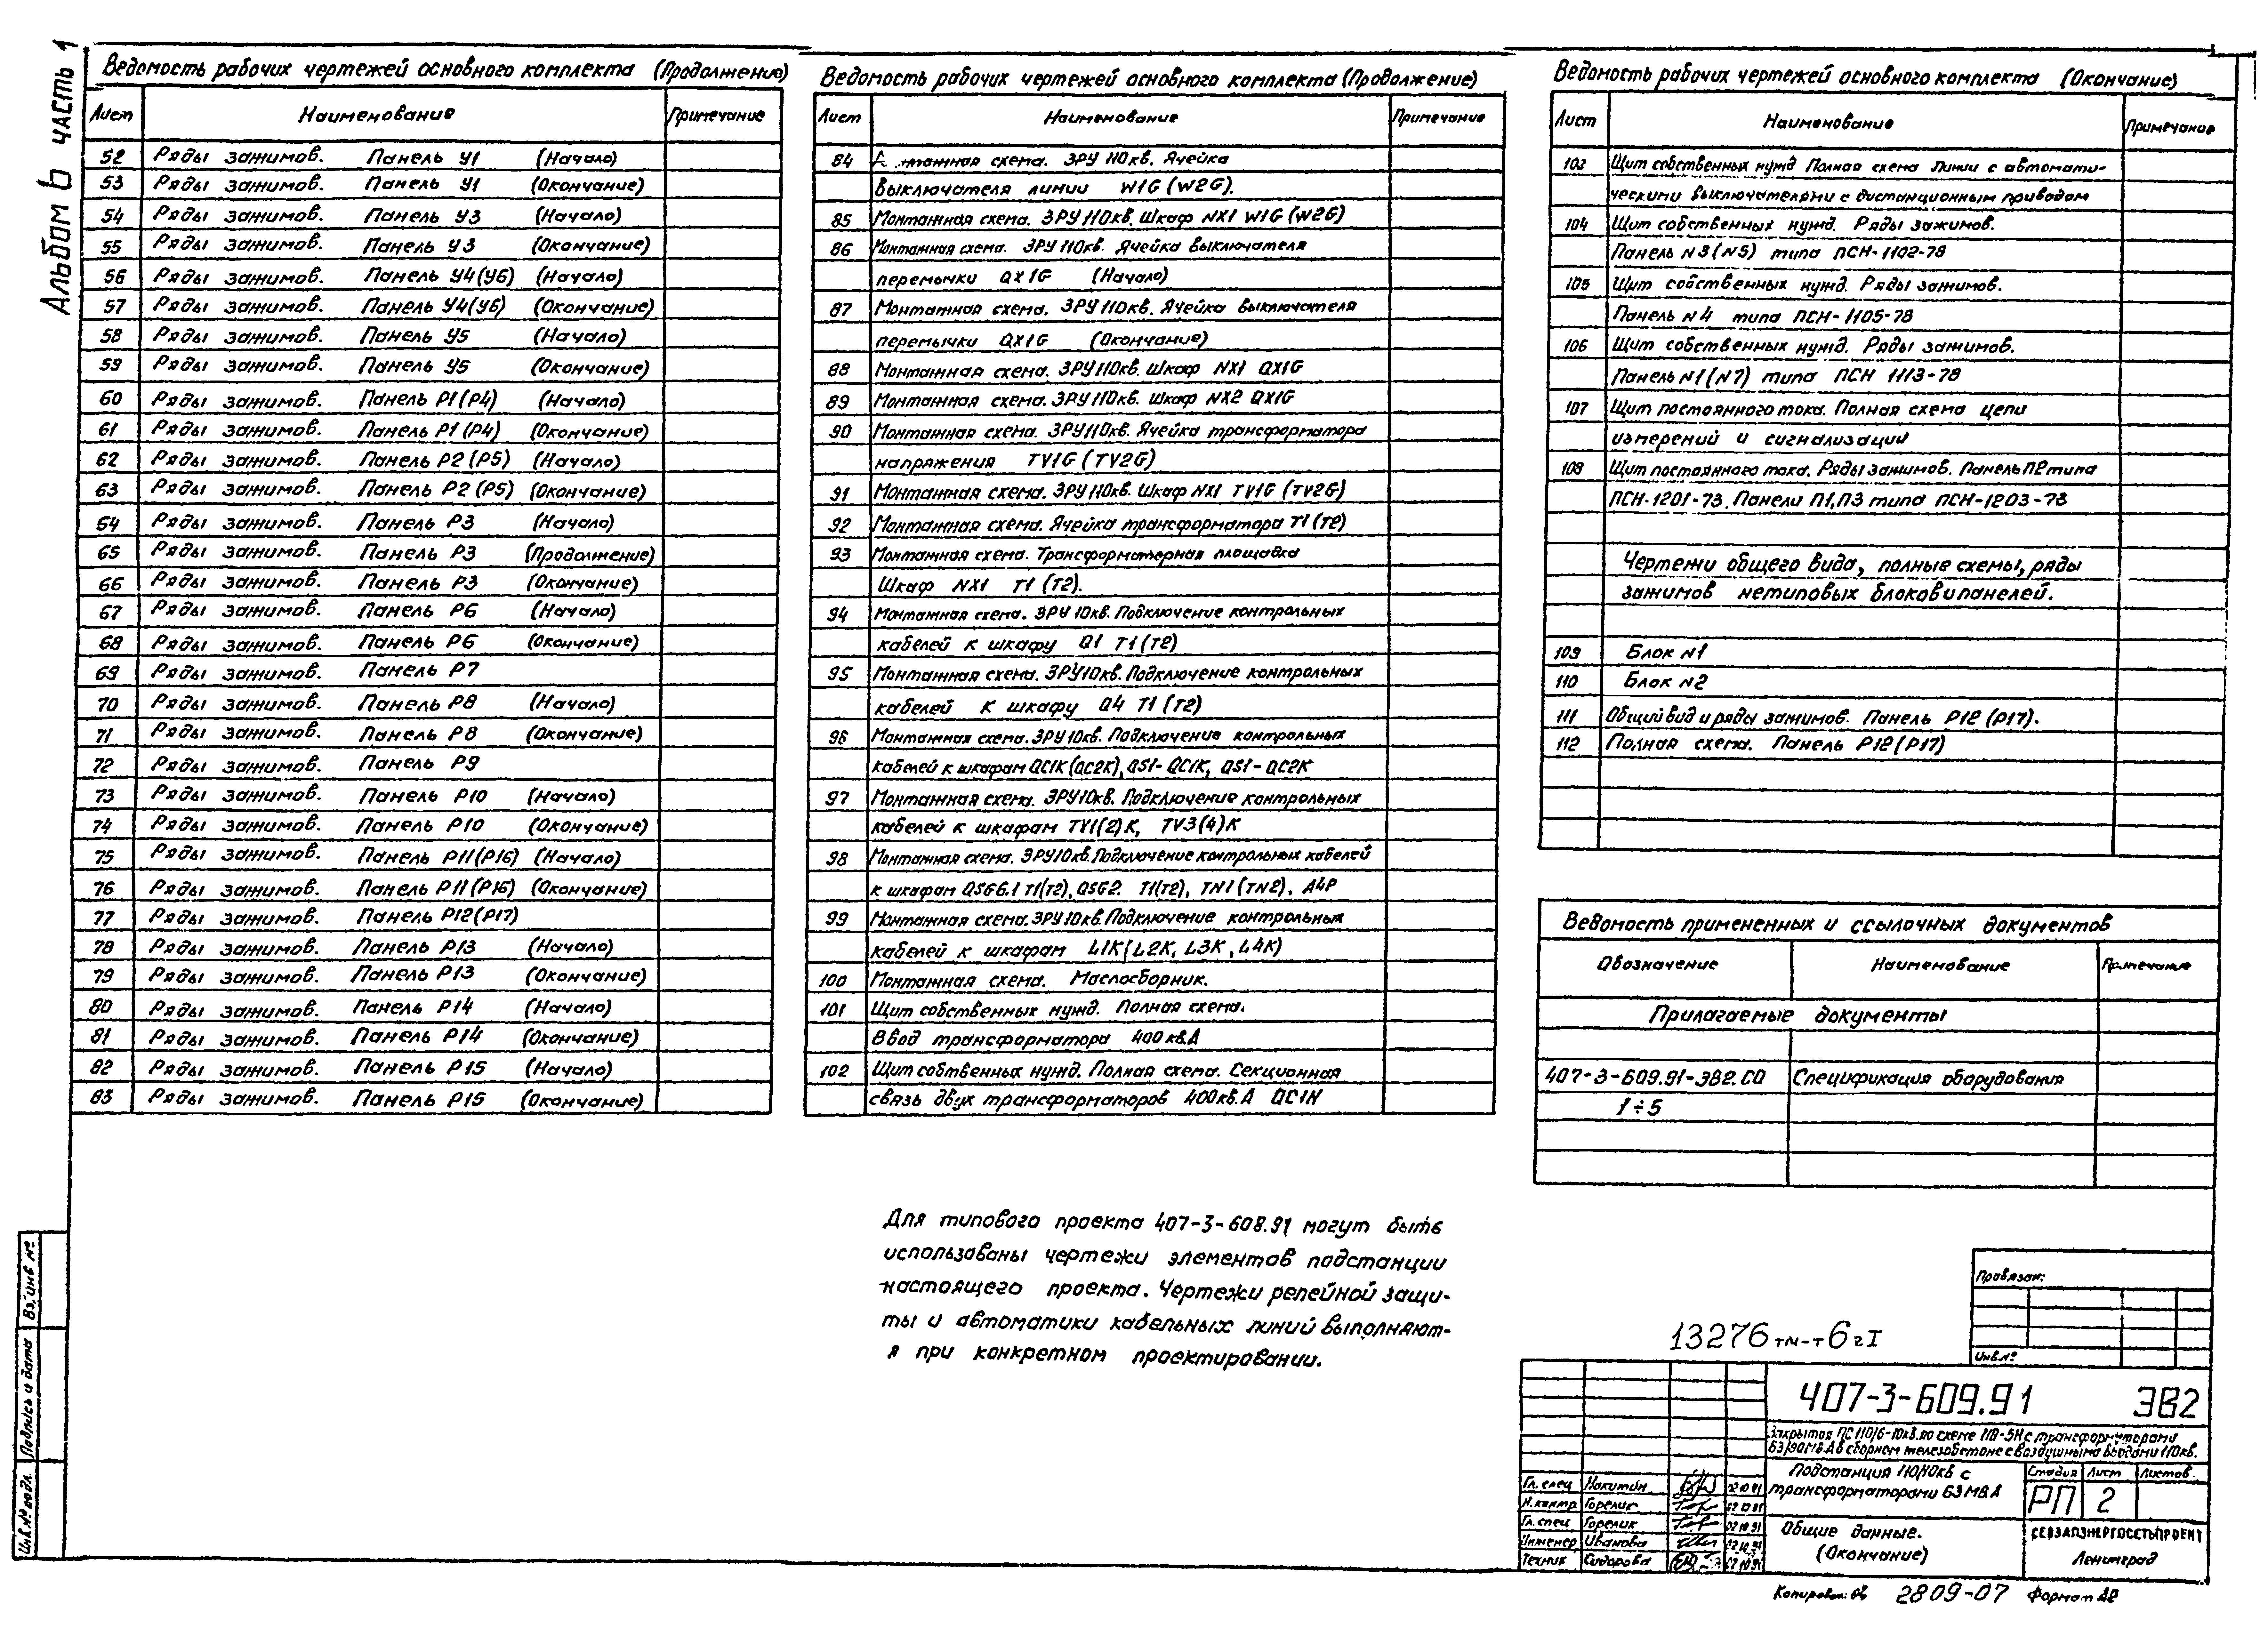 Альбом 6 часть 1
Ведомость рабочих чертежей основного комплекта (Продолжение)
Лист Наименование Примечание
52 Ряды зажимов. Панель У1 (Начало)
53 Ряды зажимов. Панель У1 (Окончание)
54 Ряды зажимов. Панель У3 (Начало)
55 Ряды зажимов. Панель У3 (Окончание)
56 Ряды зажимов. Панель У4(У6) (Начало)
57 Ряды зажимов. Панель У4(У6) (Окончание)
58 Ряды зажимов. Панель У5 (Начало)
59 Ряды зажимов. Панель У5 (Окончание)
60 Ряды зажимов. Панель Р1(Р4) (Начало)
61 Ряды зажимов. Панель Р1(Р4) (Окончание)
62 Ряды зажимов. Панель Р2(Р5) (Начало)
63 Ряды зажимов. Панель Р2(Р5) (Окончание)
64 Ряды зажимов. Панель Р3 (Начало)
65 Ряды зажимов. Панель Р3 (Продолжение)
66 Ряды зажимов. Панель Р3 (Окончание)
67 Ряды зажимов. Панель Р6 (Начало)
68 Ряды зажимов. Панель Р6 (Окончание)
69 Ряды зажимов. Панель Р7
70 Ряды зажимов. Панель Р8 (Начало)
71 Ряды зажимов. Панель Р8 (Окончание)
72 Ряды зажимов. Панель Р9
73 Ряды зажимов. Панель Р10 (Начало)
74 Ряды зажимов. Панель Р10 (Окончание)
75 Ряды зажимов. Панель Р11(Р16) (Начало)
76 Ряды зажимов. Панель Р11(Р16) (Окончание)
77 Ряды зажимов. Панель Р12(Р17)
78 Ряды зажимов. Панель Р13 (Начало)
79 Ряды зажимов. Панель Р13 (Окончание)
80 Ряды зажимов. Панель Р14 (Начало)
81 Ряды зажимов. Панель Р14 (Окончание)
82 Ряды зажимов. Панель Р15 (Начало)
83 Ряды зажимов. Панель Р15 (Окончание)
Ведомость рабочих чертежей основного комплекта (Продолжение)
Лист Наименование Примечание
84 схема. ЗРУ 110кв. Ячейка
выключателя линии W1G (W2G).
85 Монтажная схема. ЗРУ 110кв. Шкаф NX1 W1G (W2G)
86 Монтажная схема. ЗРУ 110кв. Ячейка выключателя
перемычки QX1G (Начало)
87 Монтажная схема. ЗРУ 110кв. Ячейка выключателя
перемычки QX1G (Окончание)
88 Монтажная схема. ЗРУ 110кв. Шкаф NX1 QX1G
89 Монтажная схема. ЗРУ 110кв. Шкаф NX2 QX1G
90 Монтажная схема. ЗРУ 110кв. Ячейка трансформатора
напряжения TV1G (TV2G)
91 Монтажная схема. ЗРУ 110кв. Шкаф NX1 TV1G (TV2G)
92 Монтажная схема. Ячейка трансформатора Т1(Т2)
93 Монтажная схема. Трансформаторная площадка
Шкаф NX1 Т1(Т2).
94 Монтажная схема. ЗРУ 10кв. Подключение контрольных
кабелей к шкафу Q1 Т1(Т2)
95 Монтажная схема. ЗРУ 10кв. Подключение контрольных
кабелей к шкафу Q4 Т1(Т2)
96 Монтажная схема. ЗРУ 10кв. Подключение контрольных
кабелей к шкафам QC1K(QC2K), QS1-QC1K, QS1-QC2K
97 Монтажная схема. ЗРУ 10кв. Подключение контрольных
кабелей к шкафам TV1(2)K, TV3(4)K
98 Монтажная схема. ЗРУ 10кв. Подключение контрольных кабелей
к шкафам QSG6.1 T1(T2), QSG2. T1(T2), TN1(TN2), А4Р
99 Монтажная схема. ЗРУ 10кв. Подключение контрольных
кабелей к шкафам L1K(L2K, L3K, L4K)
100 Монтажная схема. Маслосборник.
101 Щит собственных нужд. Полная схема.
Ввод трансформатора 400 кв.А
102 Щит собтвенных нужд. Полная схема. Секционная
связь двух трансформаторов 400кв.А QC1N
Ведомость рабочих чертежей основного комплекта (Окончание)
Лист Наименование Примечание
103 Щит собственных нужд Полная схема Линии с автомати-
ческими выключателями с дистанционным приводом
104 Щит собственных нужд. Ряды зажимов.
Панель N3(N5) типа ПСН-1102-78
105 Щит собственных нужд. Ряды зажимов.
Панель N4 типа ПСН-1105-78
106 Щит собственных нужд. Ряды зажимов.
Панель N1(N7) типа ПСН 1113-78
107 Щит постоянного тока. Полная схема цепи
измерений и сигнализации
108 Щит постоянного тока. Ряды зажимов. Панель П2 типа
ПСН-1201-73. Панели П1,П3 типа ПСН-1203-73
Чертежи общего вида, полные схемы, ряды
зажимов нетиповых блоков и панелей.
109 Блок N1
110 Блок N2
111 Общий вид и ряды зажимов. Панель Р12 (Р17).
112 Полная схема. Панель Р12(Р17)
Ведомость примененных и ссылочных документов
Обозначение Наименование Примечание
Прилагаемые документы
407-3-609.91-ЭВ2.СО Спецификация оборудования
1÷5
Для типового проекта 407-3-608.91 могут быть
использованы чертежи элементов подстанции
настоящего проекта. Чертежи релейной защи-
ты и автоматики кабельных линий выполняют-
я при конкретном проектировании.
Привязан:
Инв.№
13276тм-т6гI
407-3-609.91 ЭВ2
Закрытая ПС 110/6-10кв по схеме 110-5Н с трансформаторами
63/80 МВ.А в сборном железобетоне с воздушными вводами 110кв.
Подстанция 110/10кв с
трансформаторами 63 МВ.А
Стадия Лист Листов.
РП 2
Гл. спец Никитин 02.10.91
Н.контр Горелик 02.10.91
Гл. спец Горелик 02.10.91
Инженер Иванова 02.10.91
Техник Сидорова 02.10.91
Общие данные.
(Окончание)
СЕВЗАПЭНЕРГОСЕТЬПРОЕКТ
Ленинград
Копировал: 2809-07 Формат А2
Инв.№ подл. Подпись и дата Вз. инв №